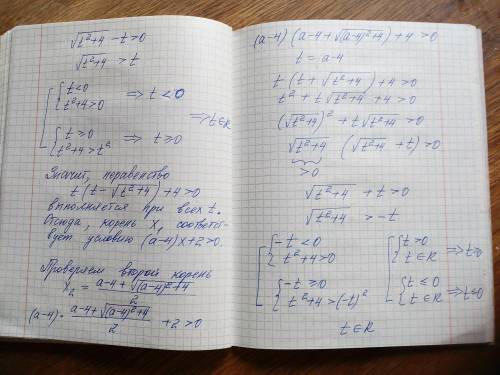 √(t²+4) - t > 0
√(t²+4) > t
[ { t<0
{ t²+4>0 ⇒ t<0
{ t≥0
{ t²+4>t² ⇒ t≥0
⇒ t∈R
Значит, неравенство
t(t-√(t²+4))+4>0
выполняется при всех t.
Отсюда, корень x₁ соответст-
вует условию (a-4)x+2>0.
Проверяем второй корень
x₂ = (a-4+√((a-4)²+4))/2
(a-4)·(a-4+√((a-4)²+4))/2 + 2>0
(a-4)(a-4+√((a-4)²+4))+4>0
t = a-4
t(t+√(t²+4))+4>0
t²+t√(t²+4)+4>0
(√(t²+4))²+t√(t²+4)>0
√(t²+4) (√(t²+4)+t)>0
>0
√(t²+4)+t>0
√(t²+4) > -t
[ { -t<0
{ t²+4>0
{ -t≥0
{ t²+4>(-t)²
[ { t>0
{ t∈R ⇒ t>0
{ t≤0
{ t∈R ⇒ t≤0
t∈R